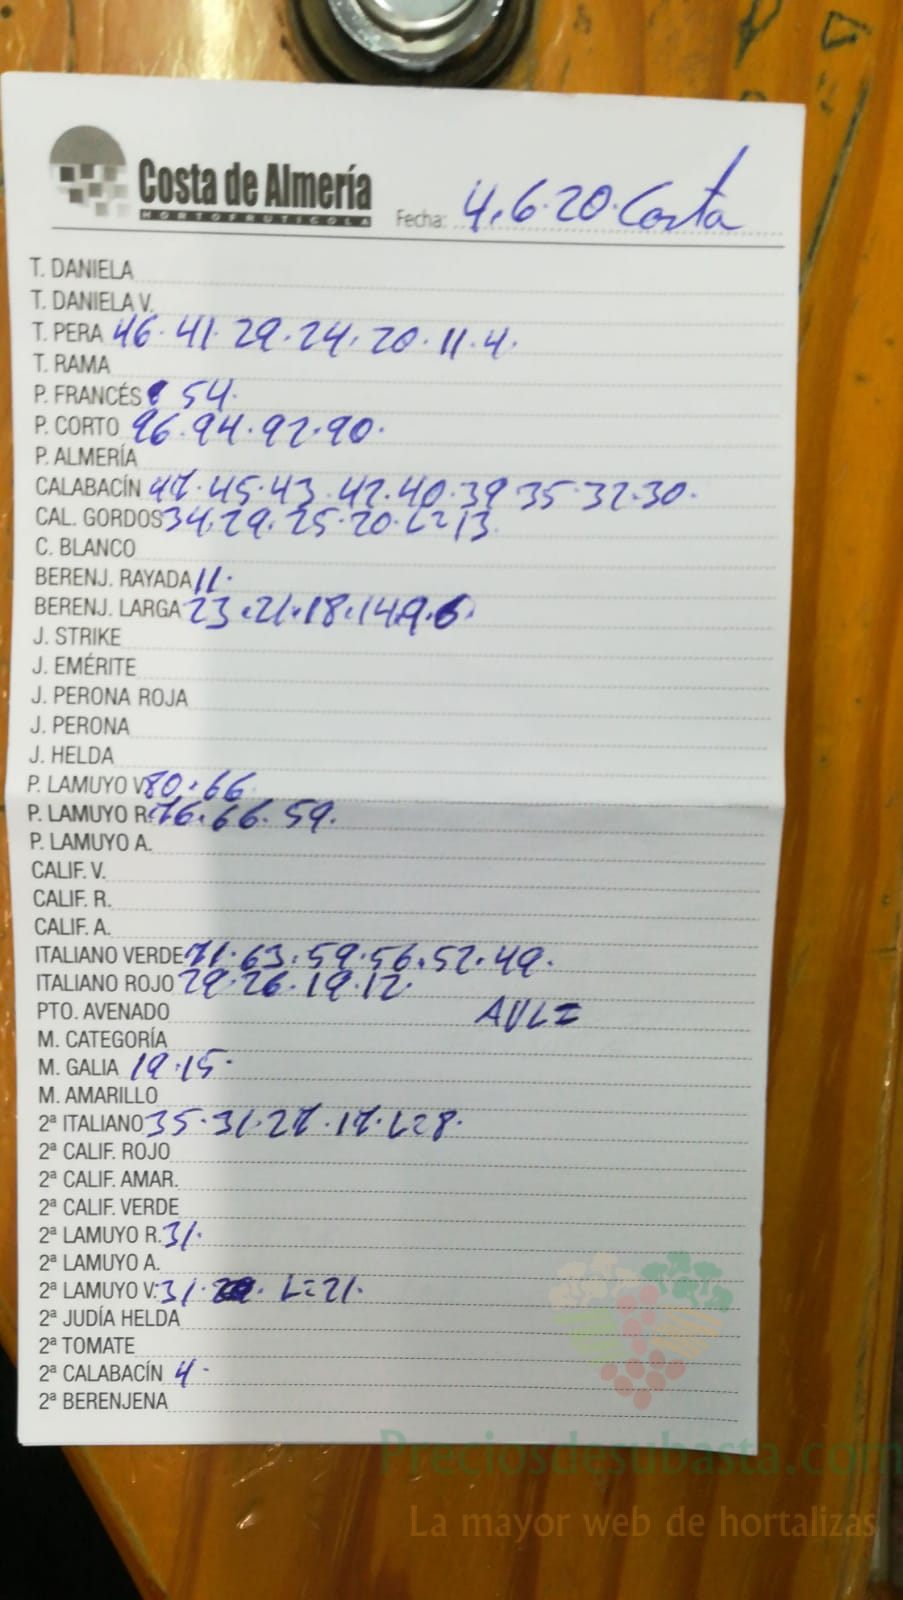 Costa de Almería
HORTOFRUTICOLA
Fecha: 4.6.20. Costa
T. DANIELA
T. DANIELA V.
T. PERA 46. 41. 29. 24. 20. 11. 4.
T. RAMA
P. FRANCÉS 54.
P. CORTO 96. 94. 92. 90.
P. ALMERÍA
CALABACÍN 47. 45. 43. 42. 40. 39 35. 32. 30.
CAL. GORDOS 34. 29. 25. 20. L=13
C. BLANCO
BERENJ. RAYADA 11.
BERENJ. LARGA 23. 21. 18. 14. 9. 6.
J. STRIKE
J. EMÉRITE
J. PERONA ROJA
J. PERONA
J. HELDA
P. LAMUYO V. 80. 66.
P. LAMUYO R. 76. 66. 59.
P. LAMUYO A.
CALIF. V.
CALIF. R.
CALIF. A.
ITALIANO VERDE 71. 63. 59. 56. 52. 49.
ITALIANO ROJO 29. 26. 19. 12.
PTO. AVENADO
M. CATEGORÍA
M. GALIA 19. 15.
M. AMARILLO
2ª ITALIANO 35. 31. 27. 17. L=8.
2ª CALIF. ROJO
2ª CALIF. AMAR.
2ª CALIF. VERDE
2ª LAMUYO R. 31.
2ª LAMUYO A.
2ª LAMUYO V. 31. L=21.
2ª JUDÍA HELDA
2ª TOMATE
2ª CALABACÍN 4.
2ª BERENJENA
Preciosdesubasta.com
La mayor web de hortalizas